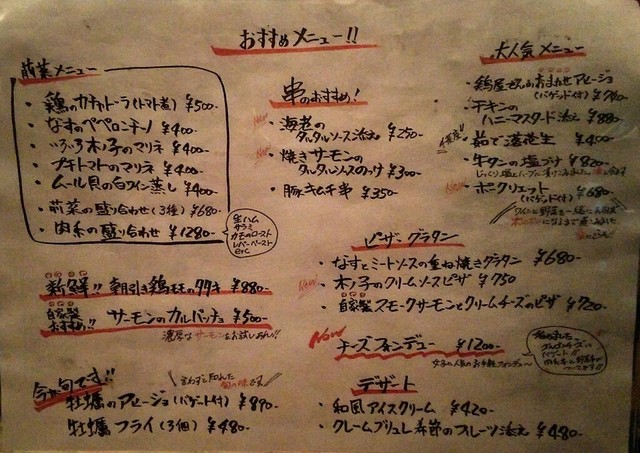 おすすめメニュー!!
前菜メニュー
・鶏のカチャトーラ(トマト煮) ¥500-
・なすのペペロンチーノ ¥400-
・いろいろ木の子のマリネ ¥400-
・プチトマトのマリネ ¥400-
・ムール貝の白ワイン蒸し ¥400-
・前菜の盛り合わせ(3種) ¥680-
・肉系の盛り合わせ ¥1280-
生ハム
サラミ
カモのロースト
レバーペースト
etc
新鮮!! 朝引き鶏ももの夕タキ ¥880-
自家製
おすすめ!! サーモンのカルパッチョ ¥500-
濃厚なサーモンをお試しあれ!!
今が旬です!!
言わずと知れた
旬の味です
牡蠣のアヒージョ(バゲット付) ¥890-
牡蠣フライ(3個) ¥480-
串のおすすめ!
New
・海老の
タルタルソース添え ¥250-
New
・焼きサーモンの
タルタルソースのっけ ¥300-
・豚キムチ串 ¥350-
大人気メニュー
・鶏屋さんのおまかせアヒージョ
(バゲット付) ¥780-
・チキンの
ハニーマスタード添え ¥880-
千葉産!!
・茹で落花生 ¥400-
・牛タンの塩づけ ¥820-
New
・ポークリエット ¥680-
(バゲット付)
ピザ・グラタン
・なすとミートソースの重ね焼きグラタン ¥680-
New
・木の子のクリームソースピザ ¥750
・自家製スモークサーモンとクリームチーズのピザ ¥720-
New
チーズフォンデュー ¥1200-
女子に人気のお手軽フォンデュ〜
デザート
・和風アイスクリーム ¥420-
・クレームブリュレ季節のフルーツ添え ¥480-